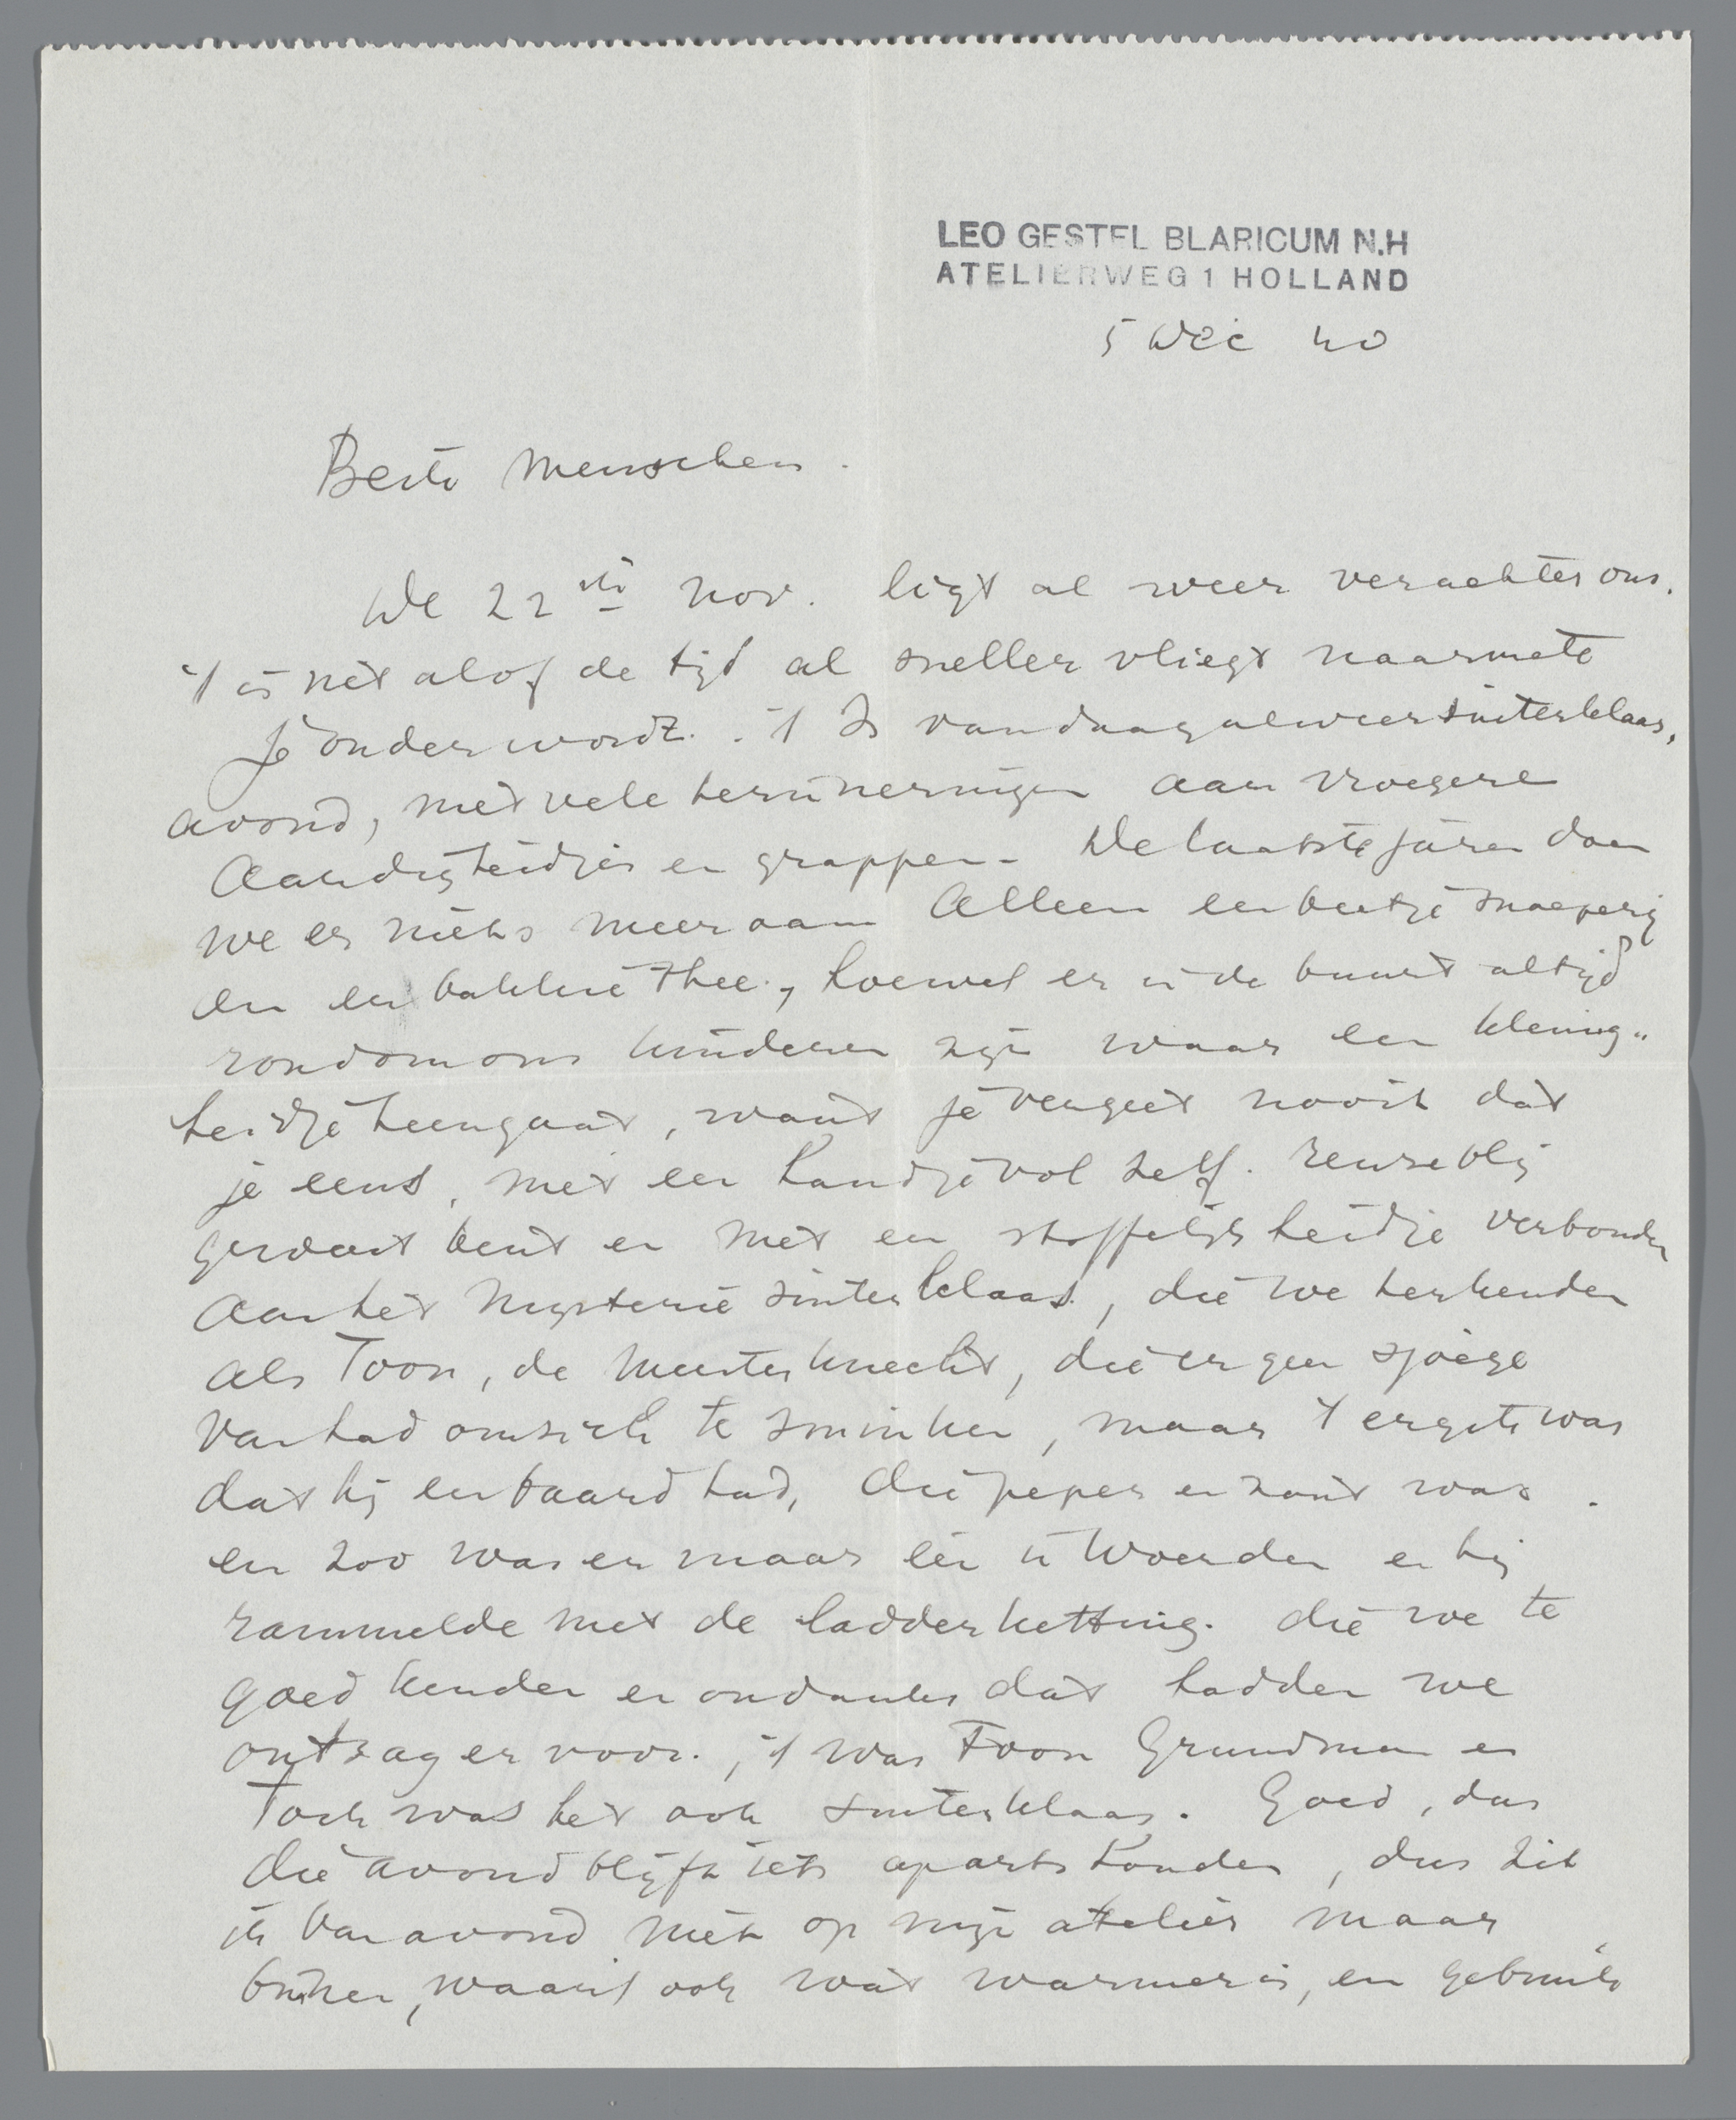 LEO GESTEL BLARICUM N.H
ATELIERWEG 1 HOLLAND
5 Dec 40
Beste Menschen.
De 22ste Nov. ligt al weer verachter ons.
't is net alof de tijd al sneller vliegt naarmate
je ouder wordt. 't Is vandaag alweer sinterklaas,
avond, met vele herinneringen aan vroegere
Aardigheidjes en grappen. De laatste jaren doen
we er niets meer aan Alleen een beetje snoeperij
en een bakkie thee, hoewel er in de buurt altijd
rondom ons kinderen zijn waar een kleinig"
heidje heengaat, want je vergeet nooit dat
je eens, met een handjevol zelf. reuzeblij
geweest bent en met een stoffelijkheidje verbonden
aan het Mysterie sinterklaas, die we herkenden
als Toon, de Meesterknecht, die er geen sjoege
van had om zich te sminken, maar 't ergste was
dat hij een baard had, die peper en zout was.
en zoo was er maar één in Woerden en hij
rammelde met de ladderketting. die we te
goed kenden en ondanks dat hadden we
ontzag er voor., 't was Toon Grundman en
Toch was het ook sinterklaas. Goed, dus
die avond blijft iets aparts houden, dus zit
ik vanavond niet op mijn atelier maar
binnen, waar 't ook wat warmer is, en gebruik